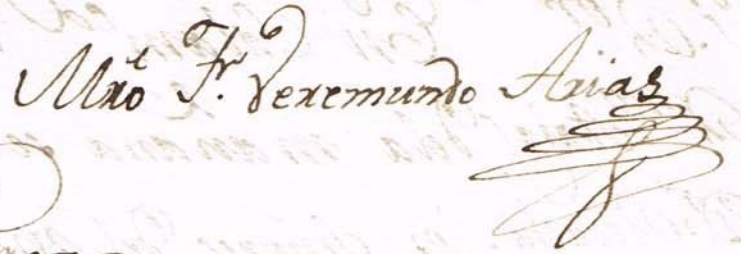 Mro Fr. Veremundo Arias